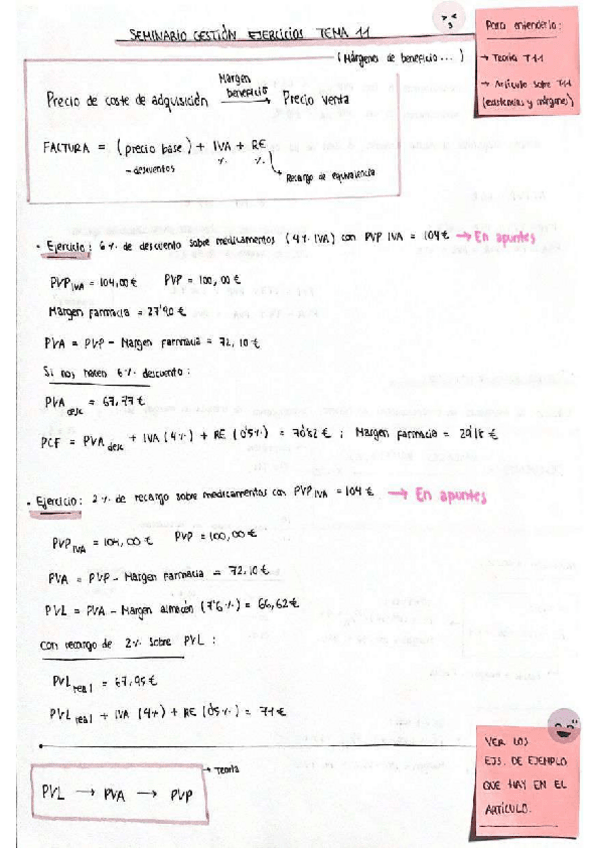 SEMINARIO GESTIÓN EJERCICIOS TEMA 11
(Márgenes de beneficio...)
Precio de coste de adquisición Margen beneficio → Precio venta
FACTURA = (precio base) + IVA + RE
- descuentos % %
Recargo de equivalencia
Para entenderlo:
→ Teoría T11
→ Artículo sobre T11
(existencias y márgenes)
• Ejercicio: 6% de descuento sobre medicamentos (4% IVA) con PVP IVA = 104€ → En apuntes
PVP IVA = 104,00€ PVP = 100,00€
Margen farmacia = 27'90€
PVA = PVP - Margen farmacia = 72,10€
Si nos hacen 6% descuento:
PVA desc = 67,77€
PCF = PVA desc + IVA (4%) + RE (0'5%) = 70'82€; Margen farmacia = 29'18€
• Ejercicio: 2% de recargo sobre medicamentos con PVP IVA = 104€. → En apuntes
PVP IVA = 104,00€ PVP = 100,00€
PVA = PVP - Margen Farmacia = 72,10€
PVL = PVA - Margen almacén (7'6%) = 66,62€
Con recargo de 2% sobre PVL:
PVL real = 67,95€
PVL real + IVA (4%) + RE (0'5%) = 71€
→ Teoría
PVL → PVA → PVP
VER LOS
EJS. DE EJEMPLO
QUE HAY EN EL
ARTÍCULO.